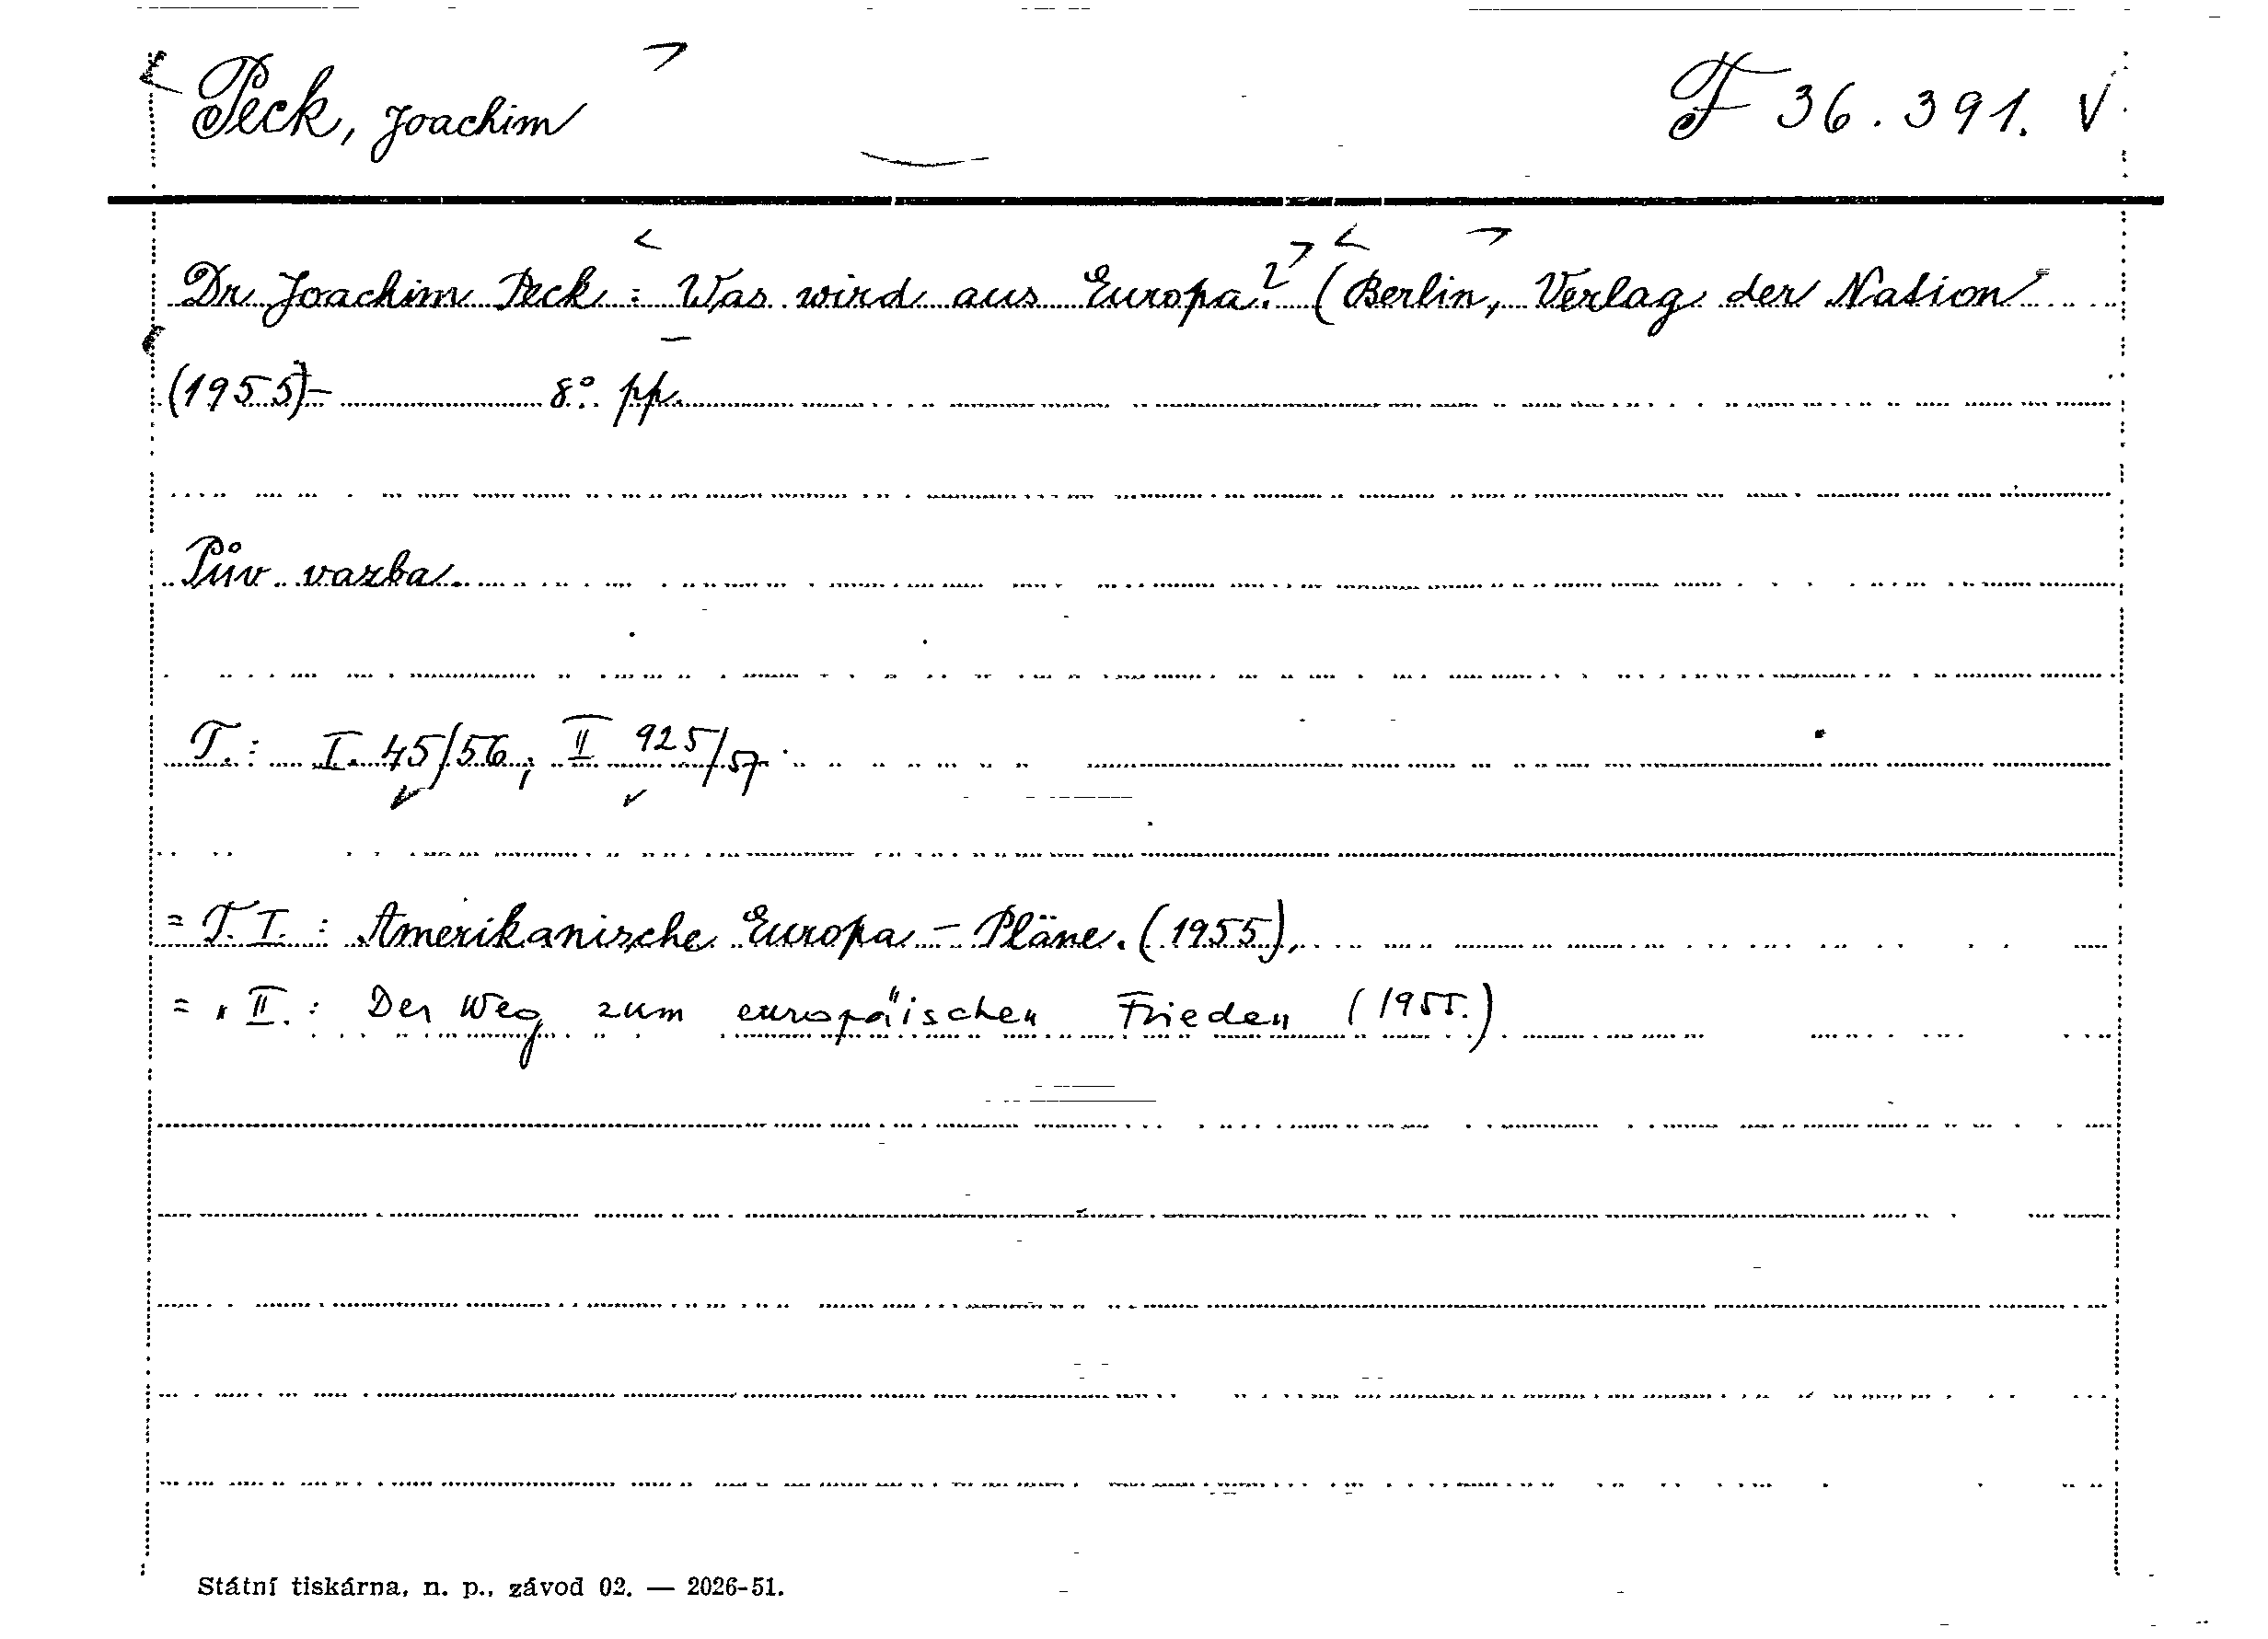 Peck, Joachim
F 36.391. V
Dr Joachim Peck : Was wird aus Europa? (Berlin, Verlag der Nation
(1955)- 8° pp.
Pův vazba.
T.: I. 45/56; II 925/57
= T. I. : Amerikanische Europa - Pläne. (1955),
= " II. : Der Weg zum europäischen Frieden (1955.)
Státní tiskárna, n. p., závod 02. — 2026-51.